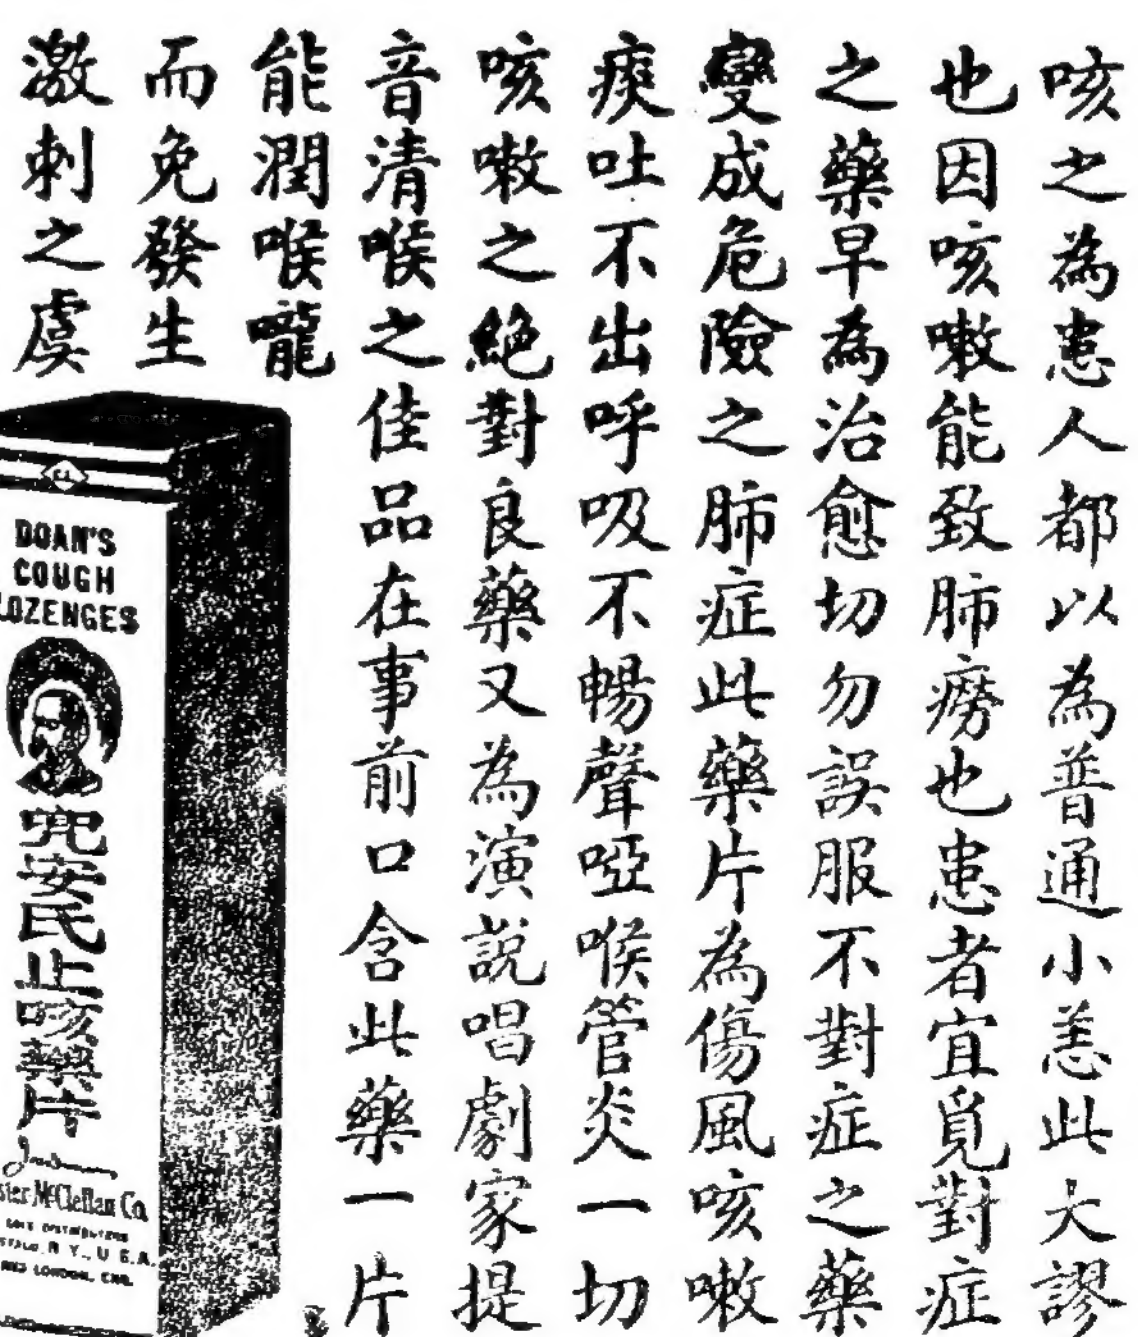 咳之為恙人都以為普通小恙此大謬
也因咳嗽能致肺癆也患者宜覓對症
之藥早為治愈切勿誤服不對症之藥
變成危險之肺症此藥片為傷風咳嗽
痰吐不出呼吸不暢聲啞喉管炎一切
咳嗽之絕對良藥又為演說唱劇家提
音清喉之佳品在事前口含此藥一片
能潤喉嚨
而免發生
激刺之虞
DOAN'S
COUGH
LOZENGES
兜安氏止咳藥片
McClellan Co.
SOLE DISTRIBUTORS
N. Y., U. S. A.
AND LONDON, ENG.